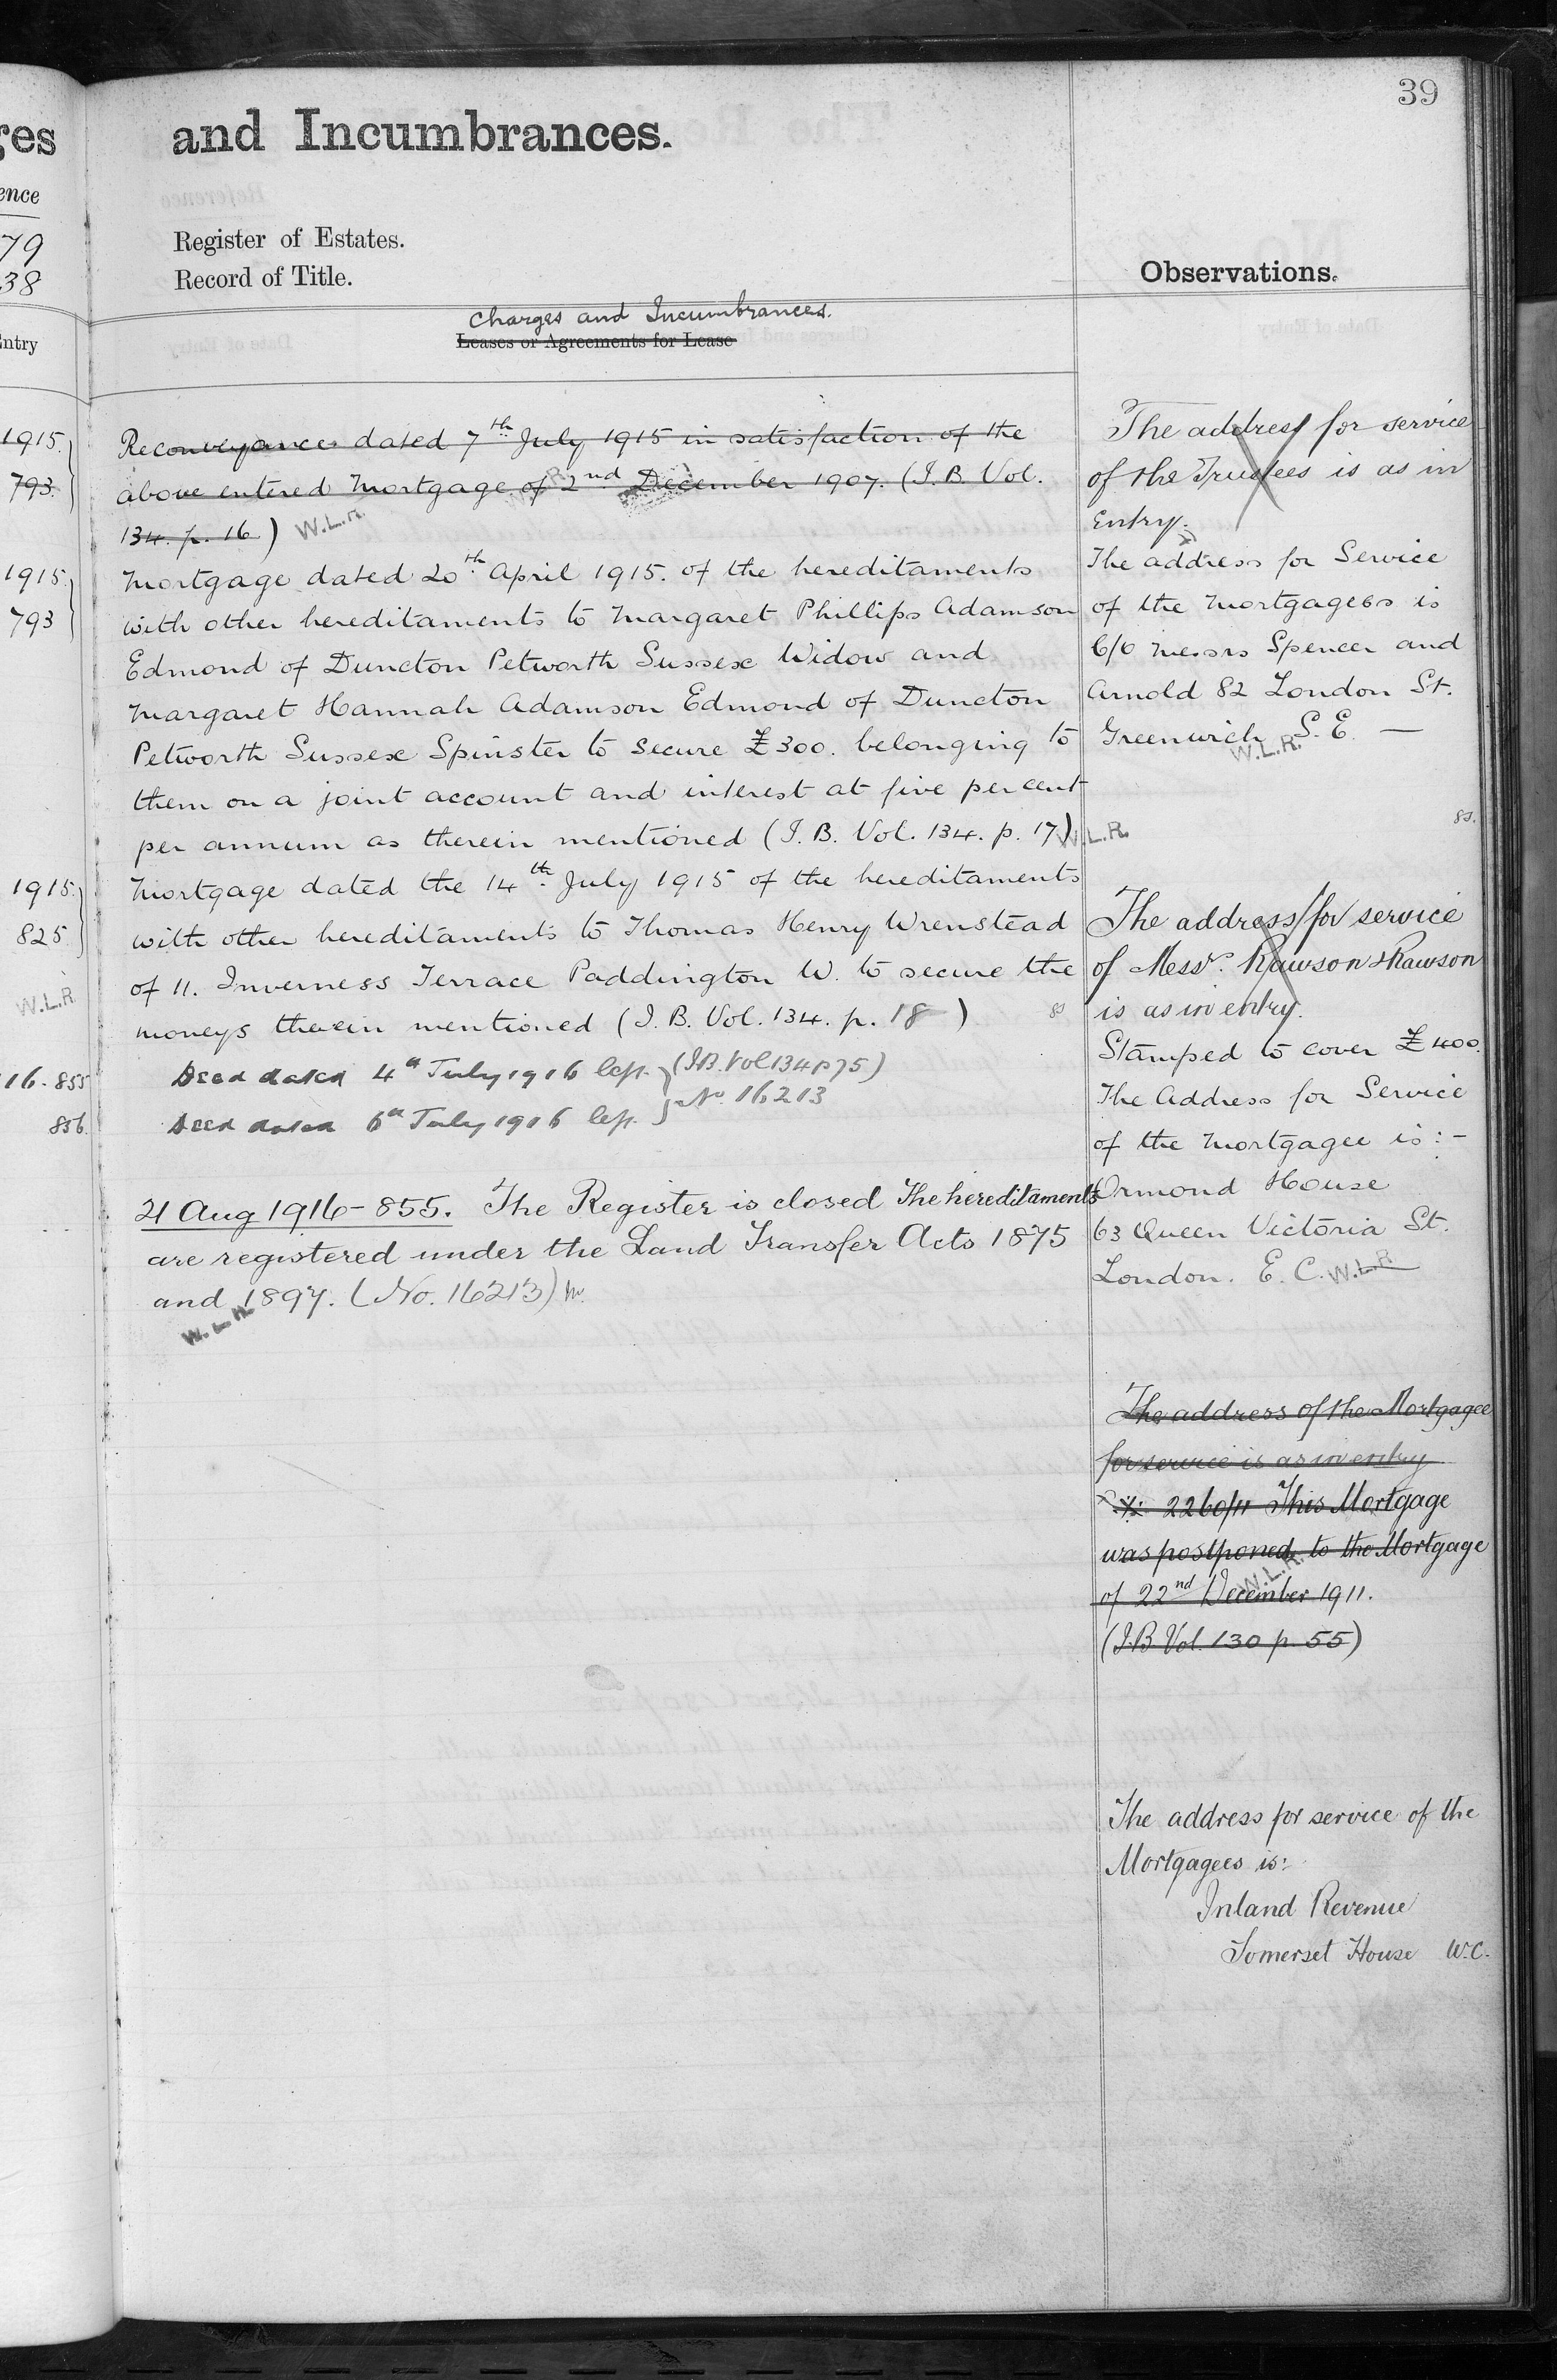 39
ges
and Incumbrances.
ence
79
38
Register of Estates.
Record of Title.
Observations.
Entry
Charges and Incumbrances.
Leases or Agreements for Lease
1915.
793.
Reconveyance dated 7th July 1915 in satisfaction of the
above entered Mortgage of 2nd December 1907. (I.B. Vol.
134. p. 16) W.L.R.
1915.
793
Mortgage dated 20th April 1915. of the hereditaments
with other hereditaments to Margaret Phillips Adamson
Edmond of Duncton Petworth Sussex Widow and
Margaret Hannah Adamson Edmond of Duncton
Petworth Sussex Spinster to secure £300. belonging to
them on a joint account and interest at five per cent
per annum as therein mentioned (I.B. Vol. 134. p. 17) W.L.R.
1915.
825
W.L.R
Mortgage dated the 14th July 1915 of the hereditaments
with other hereditaments to Thomas Henry Wrenstead
of 11. Inverness Terrace Paddington W. to secure the
moneys therein mentioned (I.B. Vol. 134. p. 18)
16-855
856
Deed dated 4th July 1916 (I.B. Vol 134 p 75)
Deed dated 6th July 1916 No. 16213
21 Aug 1916-855. The Register is closed The hereditaments
are registered under the Land Transfer Acts 1875
and 1897. (No. 16213)
W.L.R.
The address for service
of the Trustees is as in
Entry.
The address for Service
of the Mortgagees is
C/o Messrs Spencer and
Arnold 82 London St.
Greenwich S.E. —
W.L.R.
The address for service
of Messrs. Rawson & Rawson
is as in entry.
Stamped to cover £400.
The Address for Service
of the Mortgagee is:-
Ormond House
63 Queen Victoria St.
London. E.C. W.L.R.
The address of the Mortgagee
for service is as in entry
2260/11 This Mortgage
was postponed to the Mortgage
W.L.R.
of 22nd December 1911.
(I.B. Vol. 130 p. 55)
The address for service of the
Mortgagees is:
Inland Revenue
Somerset House W.C.